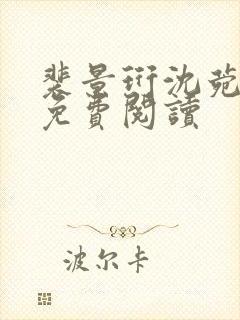 裴景珩沈菀
免費閱讀
波尔卡